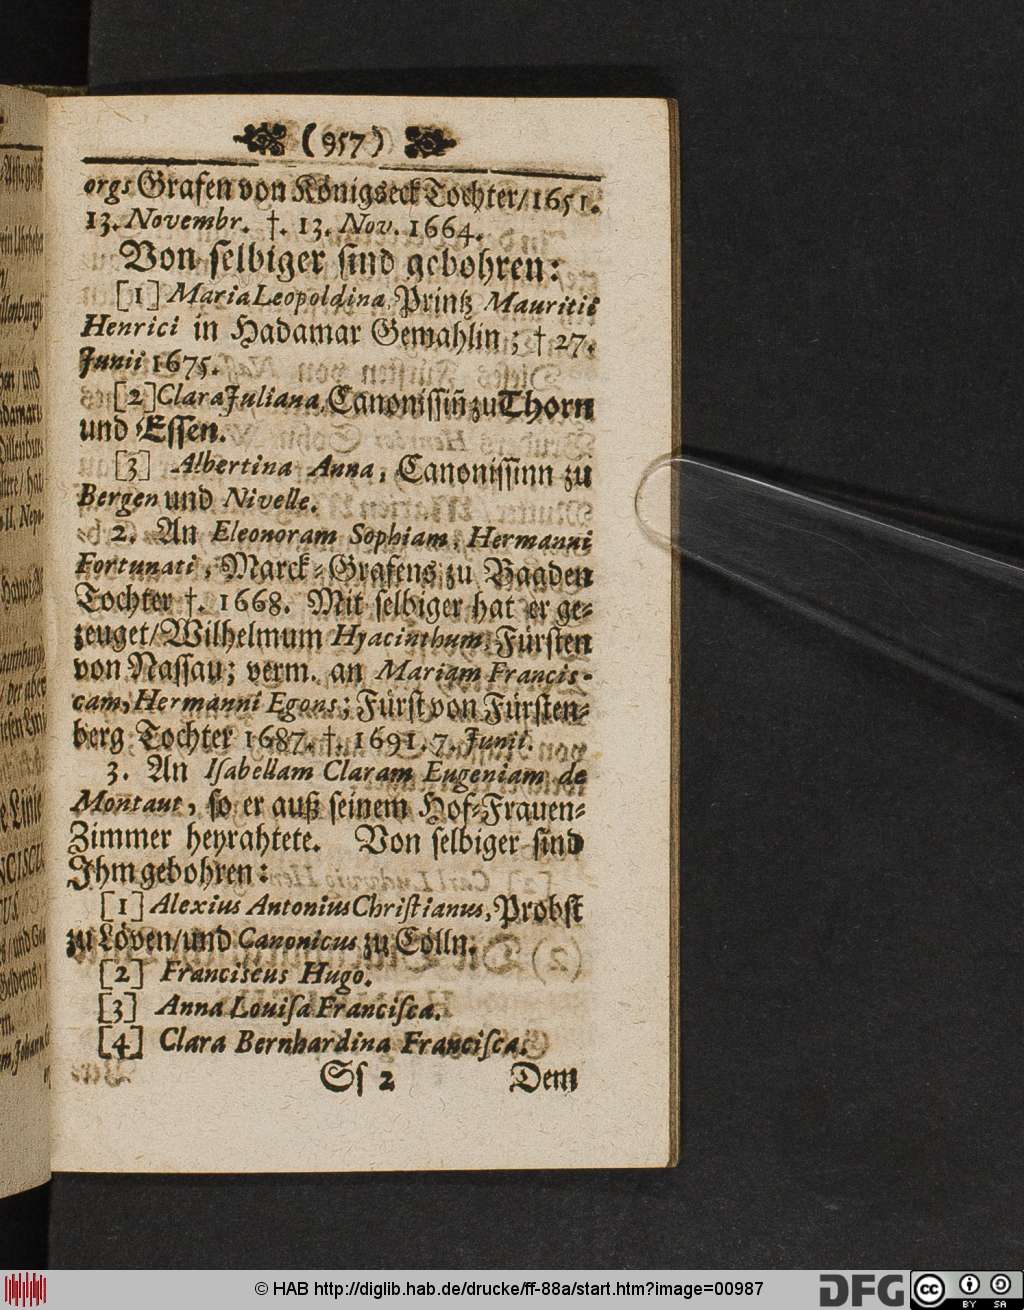 (957)
orgs Grafen von Königseck Tochter/1651.
13. Novembr. †. 13. Nov. 1664.
Von selbiger sind gebohren:
[1] Maria Leopoldina, Printz Mauritii
Henrici in Hadamar Gemahlin; † 27.
Junii 1675.
[2] Clara Juliana, Canonissiñ zu Thorn
und Essen.
[3] Albertina Anna, Canonissinn zu
Bergen und Nivelle.
2. An Eleonoram Sophiam, Hermanni
Fortunati, Marck-Grafens zu Baaden
Tochter †. 1668. Mit selbiger hat er ge-
zeuget/ Wilhelmum Hyacinthum, Fürsten
von Nassau; verm. an Mariam Francis-
cam, Hermanni Egons, Fürst von Fürsten-
berg Tochter 1687. †. 1691. 7. Junii.
3. An Isabellam Claram Eugeniam de
Montaut, so er auß seinem Hof-Frauen-
Zimmer heyrahtete. Von selbiger sind
Ihm gebohren:
[1] Alexius Antonius Christianus, Probst
zu Löven/und Canonicus zu Cölln.
[2] Franciscus Hugo.
[3] Anna Louisa Francisca.
[4] Clara Bernhardina Francisca.
Ss 2 Dem
© HAB http://diglib.hab.de/drucke/ff-88a/start.htm?image=00987
DFG
cc BY SA